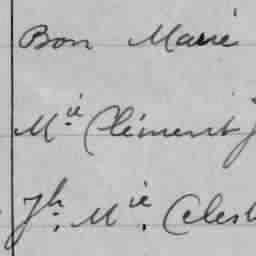 Bon Marie
Mie Clément J
Jh. Mie. Celest